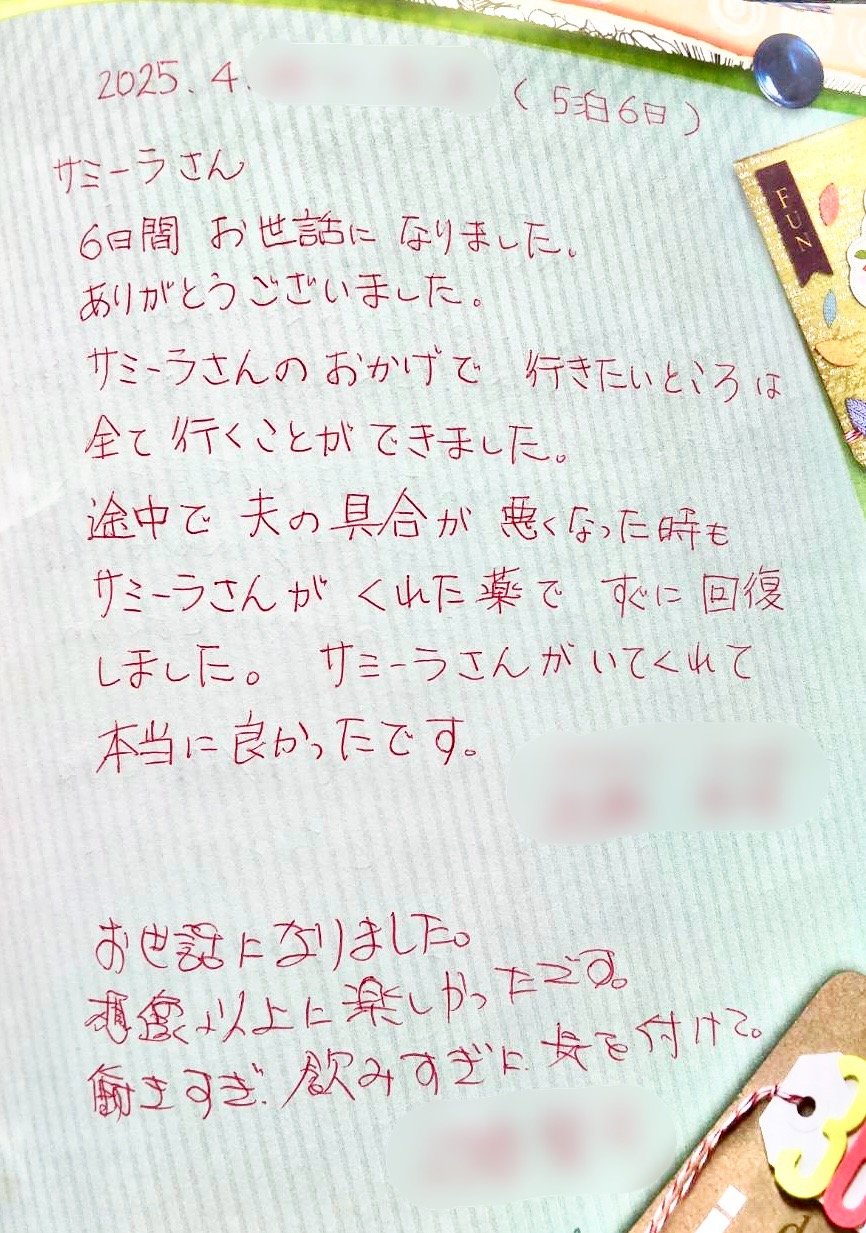 2025.4.
(5泊6日)
サミーラさん
6日間 お世話に なりました。
ありがとうございました。
サミーラさんの おかげで 行きたいところは
全て 行くことが できました。
途中で 夫の 具合が 悪くなった時も
サミーラさんが くれた 薬で すぐに 回復
しました。 サミーラさんが いてくれて
本当に 良かったです。
お世話になりました。
想像以上に 楽しかったです。
働きすぎ、飲みすぎに 気を付けて。
FUN
30